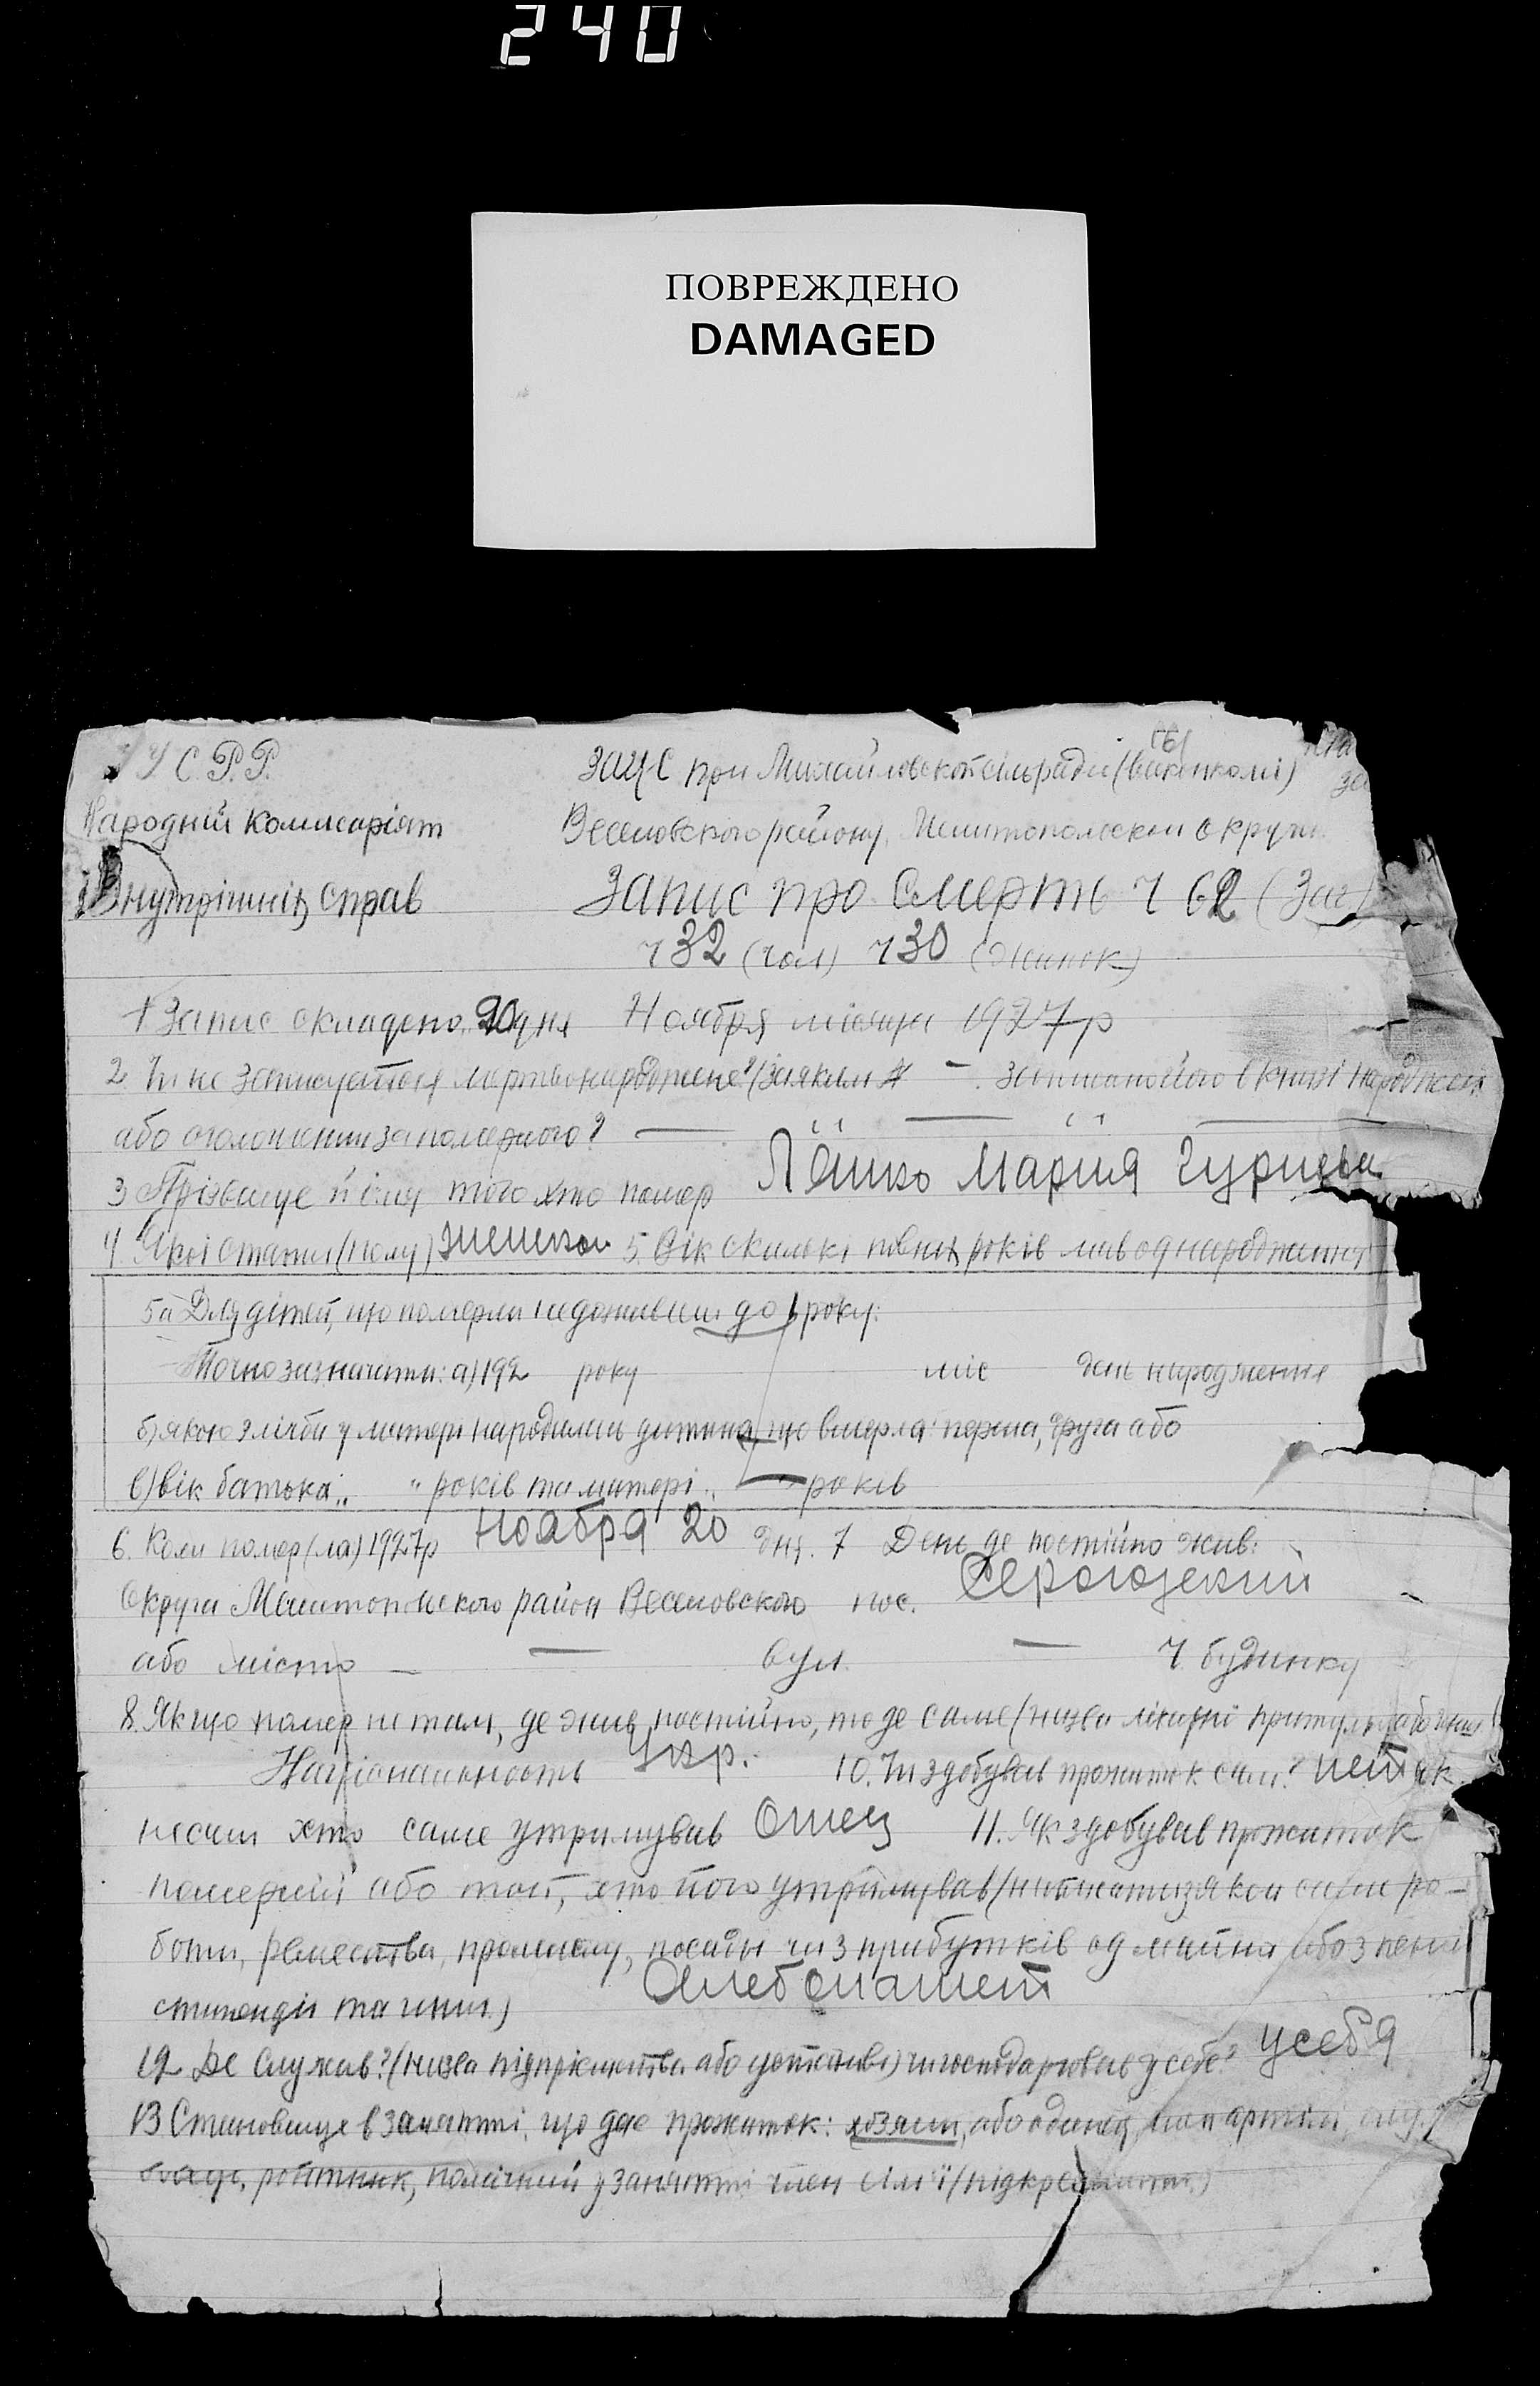 240
ПОВРЕЖДЕНО
DAMAGED
У С.Р.Р.
ЗАЦС при Михайловской сільради (виконкомі)
Народній Комисаріят
Веселовського району, Мелитопольской округи
Внутрішніх справ
Запис про смерть ч 62 (Заг)
ч 32 (чол) ч 30 (жинок)
1 Запис складено 20 дня Ноября місяця 1927 р
2. Чи не записується мертвонароджене? (за яким № — записано його в книзі народження
або оголошений за померлого? —
3 Прізвище й імя того хто помер Лёшко Мария
4. Якої статти (полу) женской 5. Вік скилькі повних років мав од народження
5а Для дітей, що померли не доживши до 1 року:
Точно зазначити: а) 192 року міс день народження
б) якою з лічби у матері народилась дитина, що вмерла: перша, друга або
в) вік батька „ “ років та матері „ — “ років
6. Коли помер (ла) 1927 р Ноября 20 дня. 7 День де постійно жив:
Округи Мелитопольского район Веселовського пос. Серогозский
або місто — — вул. — Ч. будинку
8. Якщо помер не там, де жив постійно, то де саме (назва лікарні притулку або інш.
Національность Укр. 10. Чи здобував прожиток сам? нет як
не сам хто саме утримував Отец 11. Як здобував прожиток
померлий або той, хто його утримував (написати з якои саме ро-
боти, ремества, промислу, посади чи з прибутків од майна або з пенсии
стипендіи та инш.) Хлебопашет
12 Де служив? (назва підпріємства або установи) чи господарював у себе? у себя
13 Становище в занятті, що дає прожиток: хозяин, або одинец, член артілі, служ-
бовець, робітник, помічний у занятті член сім'ї (підкреслити)